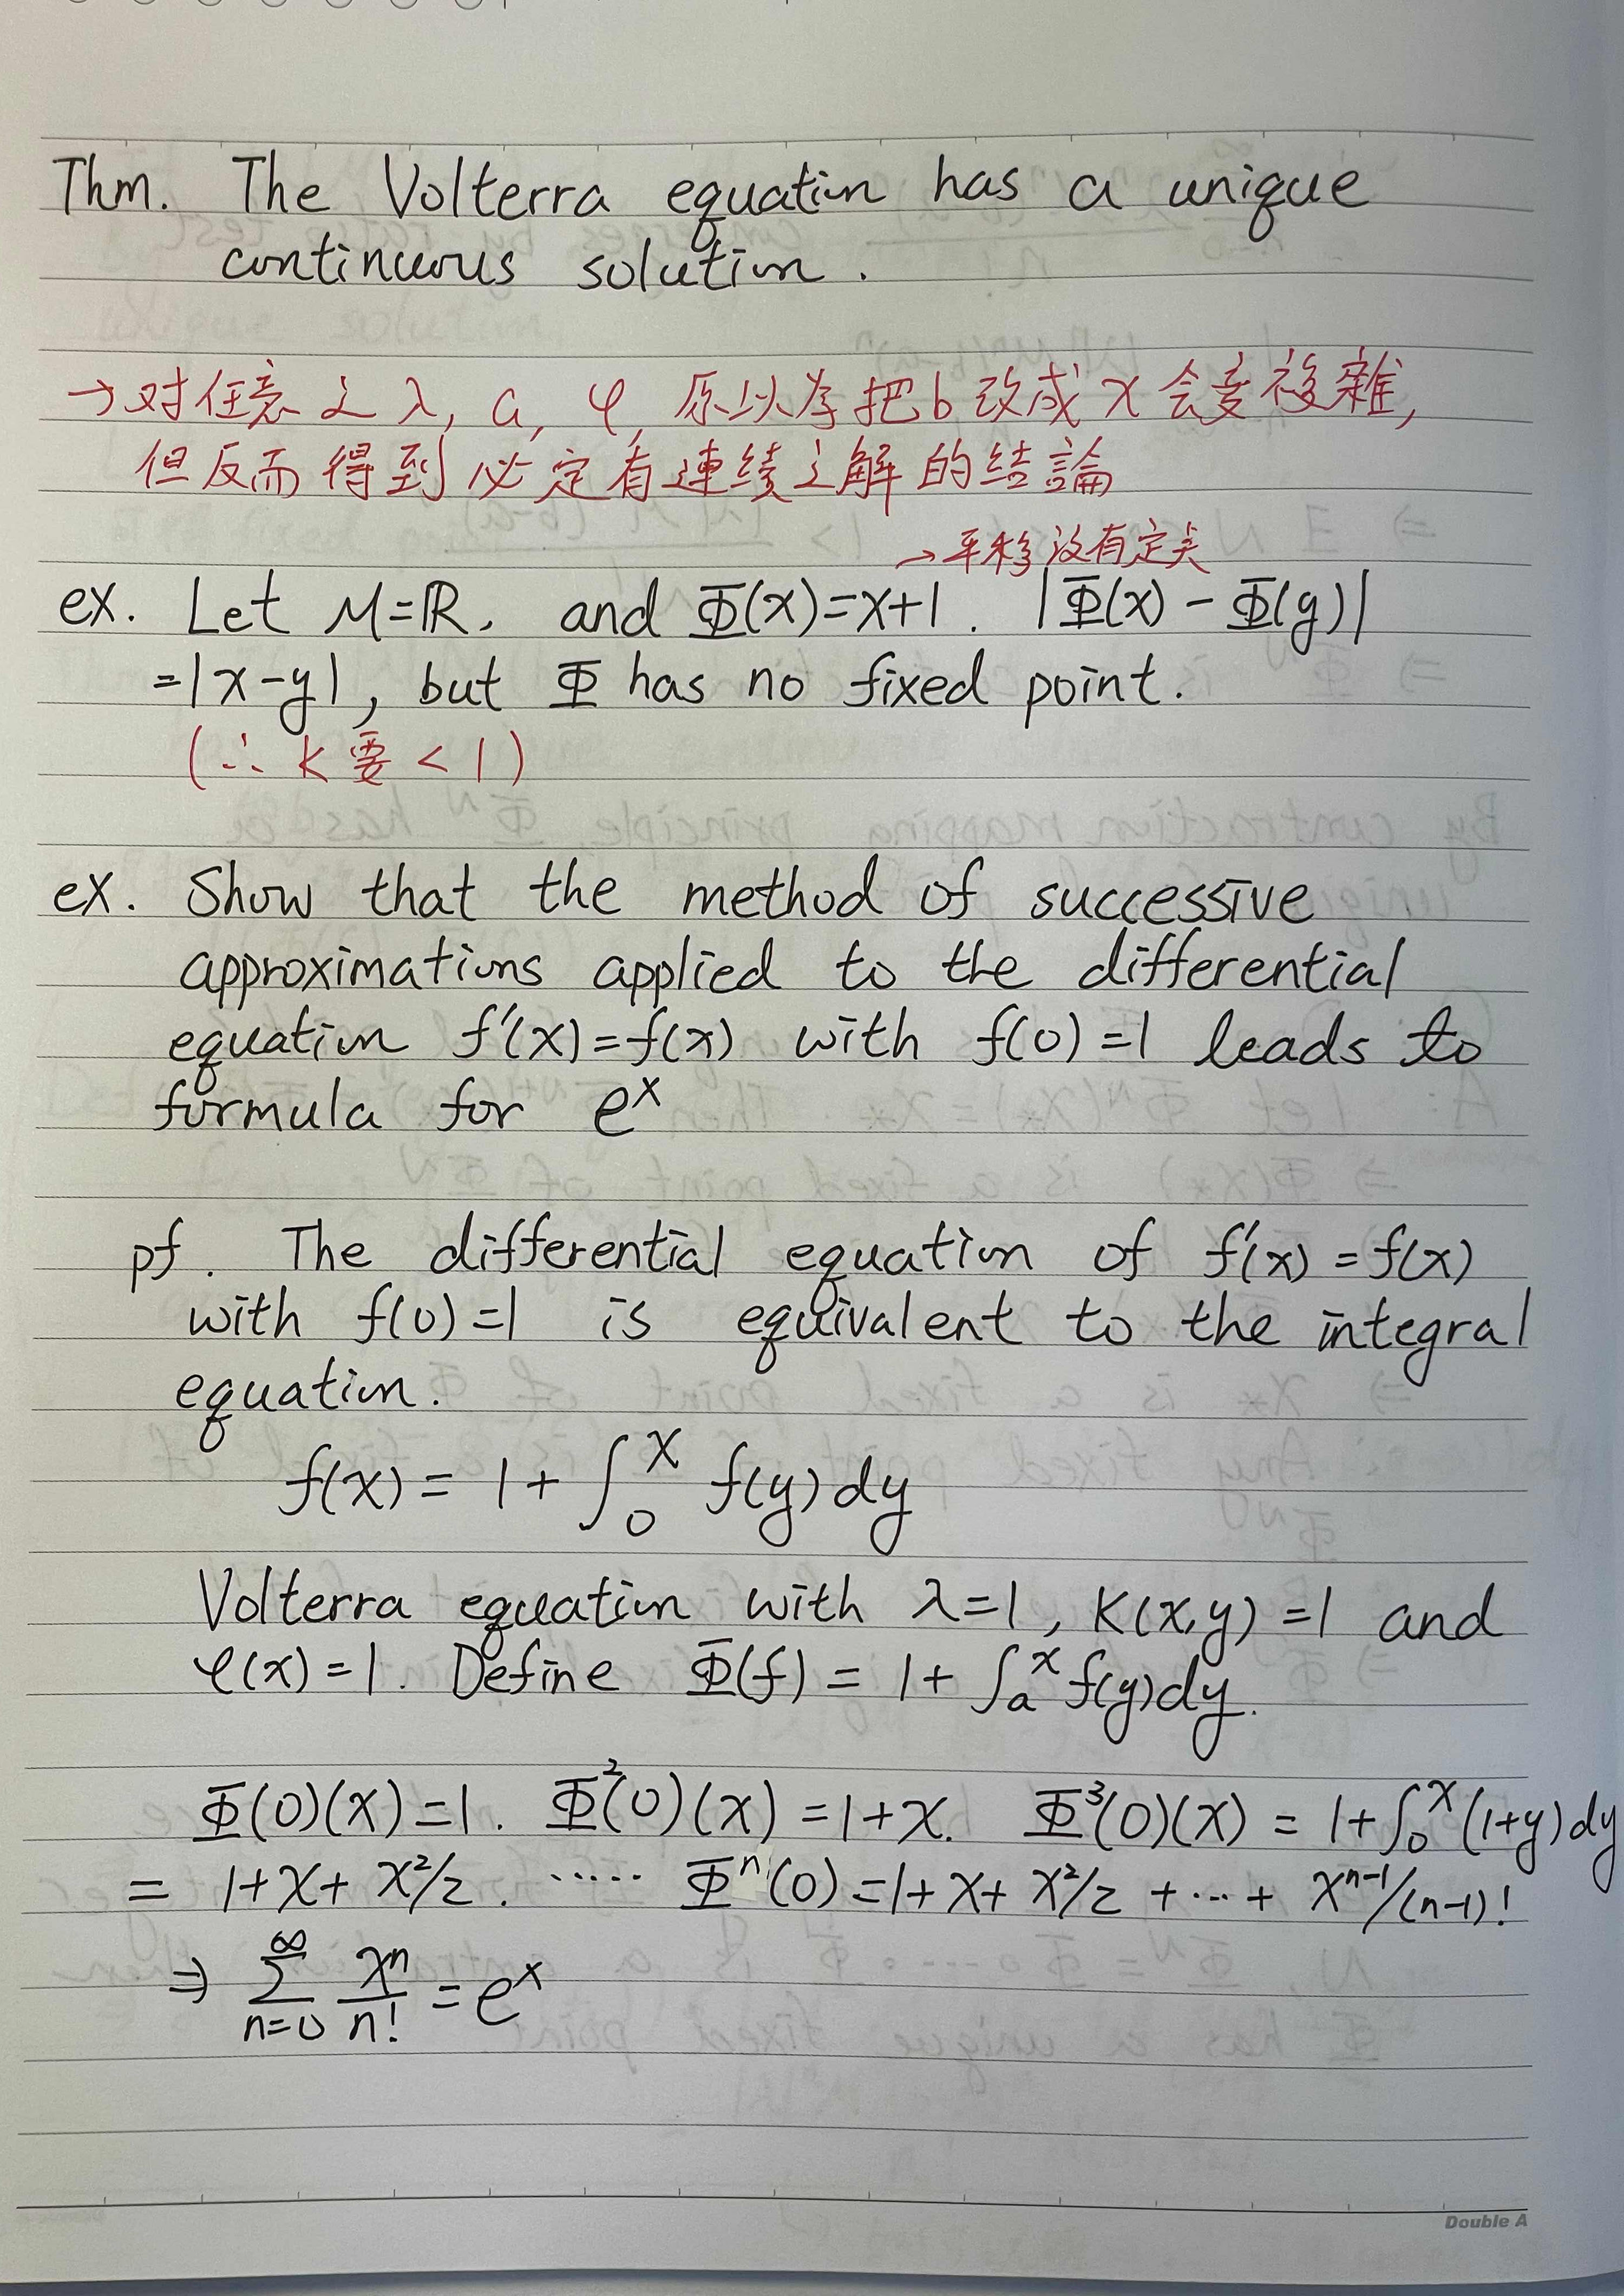 Thm. The Volterra equation has a unique
continuous solution.
→对任意之 λ, a, φ, 原以为把b改成 x 会变複雜,
但反而得到必定有連續之解的結論
→平移沒有定点
ex. Let M=ℝ, and Φ(x)=x+1. |Φ(x) - Φ(y)|
=|x-y|, but Φ has no fixed point.
(∴ k 要 < 1)
ex. Show that the method of successive
approximations applied to the differential
equation f'(x)=f(x) with f(0)=1 leads to
formula for eˣ
pf. The differential equation of f'(x)=f(x)
with f(0)=1 is equivalent to the integral
equation.
f(x) = 1+∫₀ˣ f(y)dy
Volterra equation with λ=1, K(x,y)=1 and
φ(x)=1. Define Φ(f) = 1+∫ₐˣ f(y)dy.
Φ(0)(x)=1. Φ²(0)(x)=1+x. Φ³(0)(x) = 1+∫₀ˣ(1+y)dy
= 1+x+x²/2. ..... Φⁿ(0)=1+x+x²/2 +...+ xⁿ⁻¹/(n-1)!
⇒ ∑_{n=0}^{∞} xⁿ/n! = eˣ
Double A